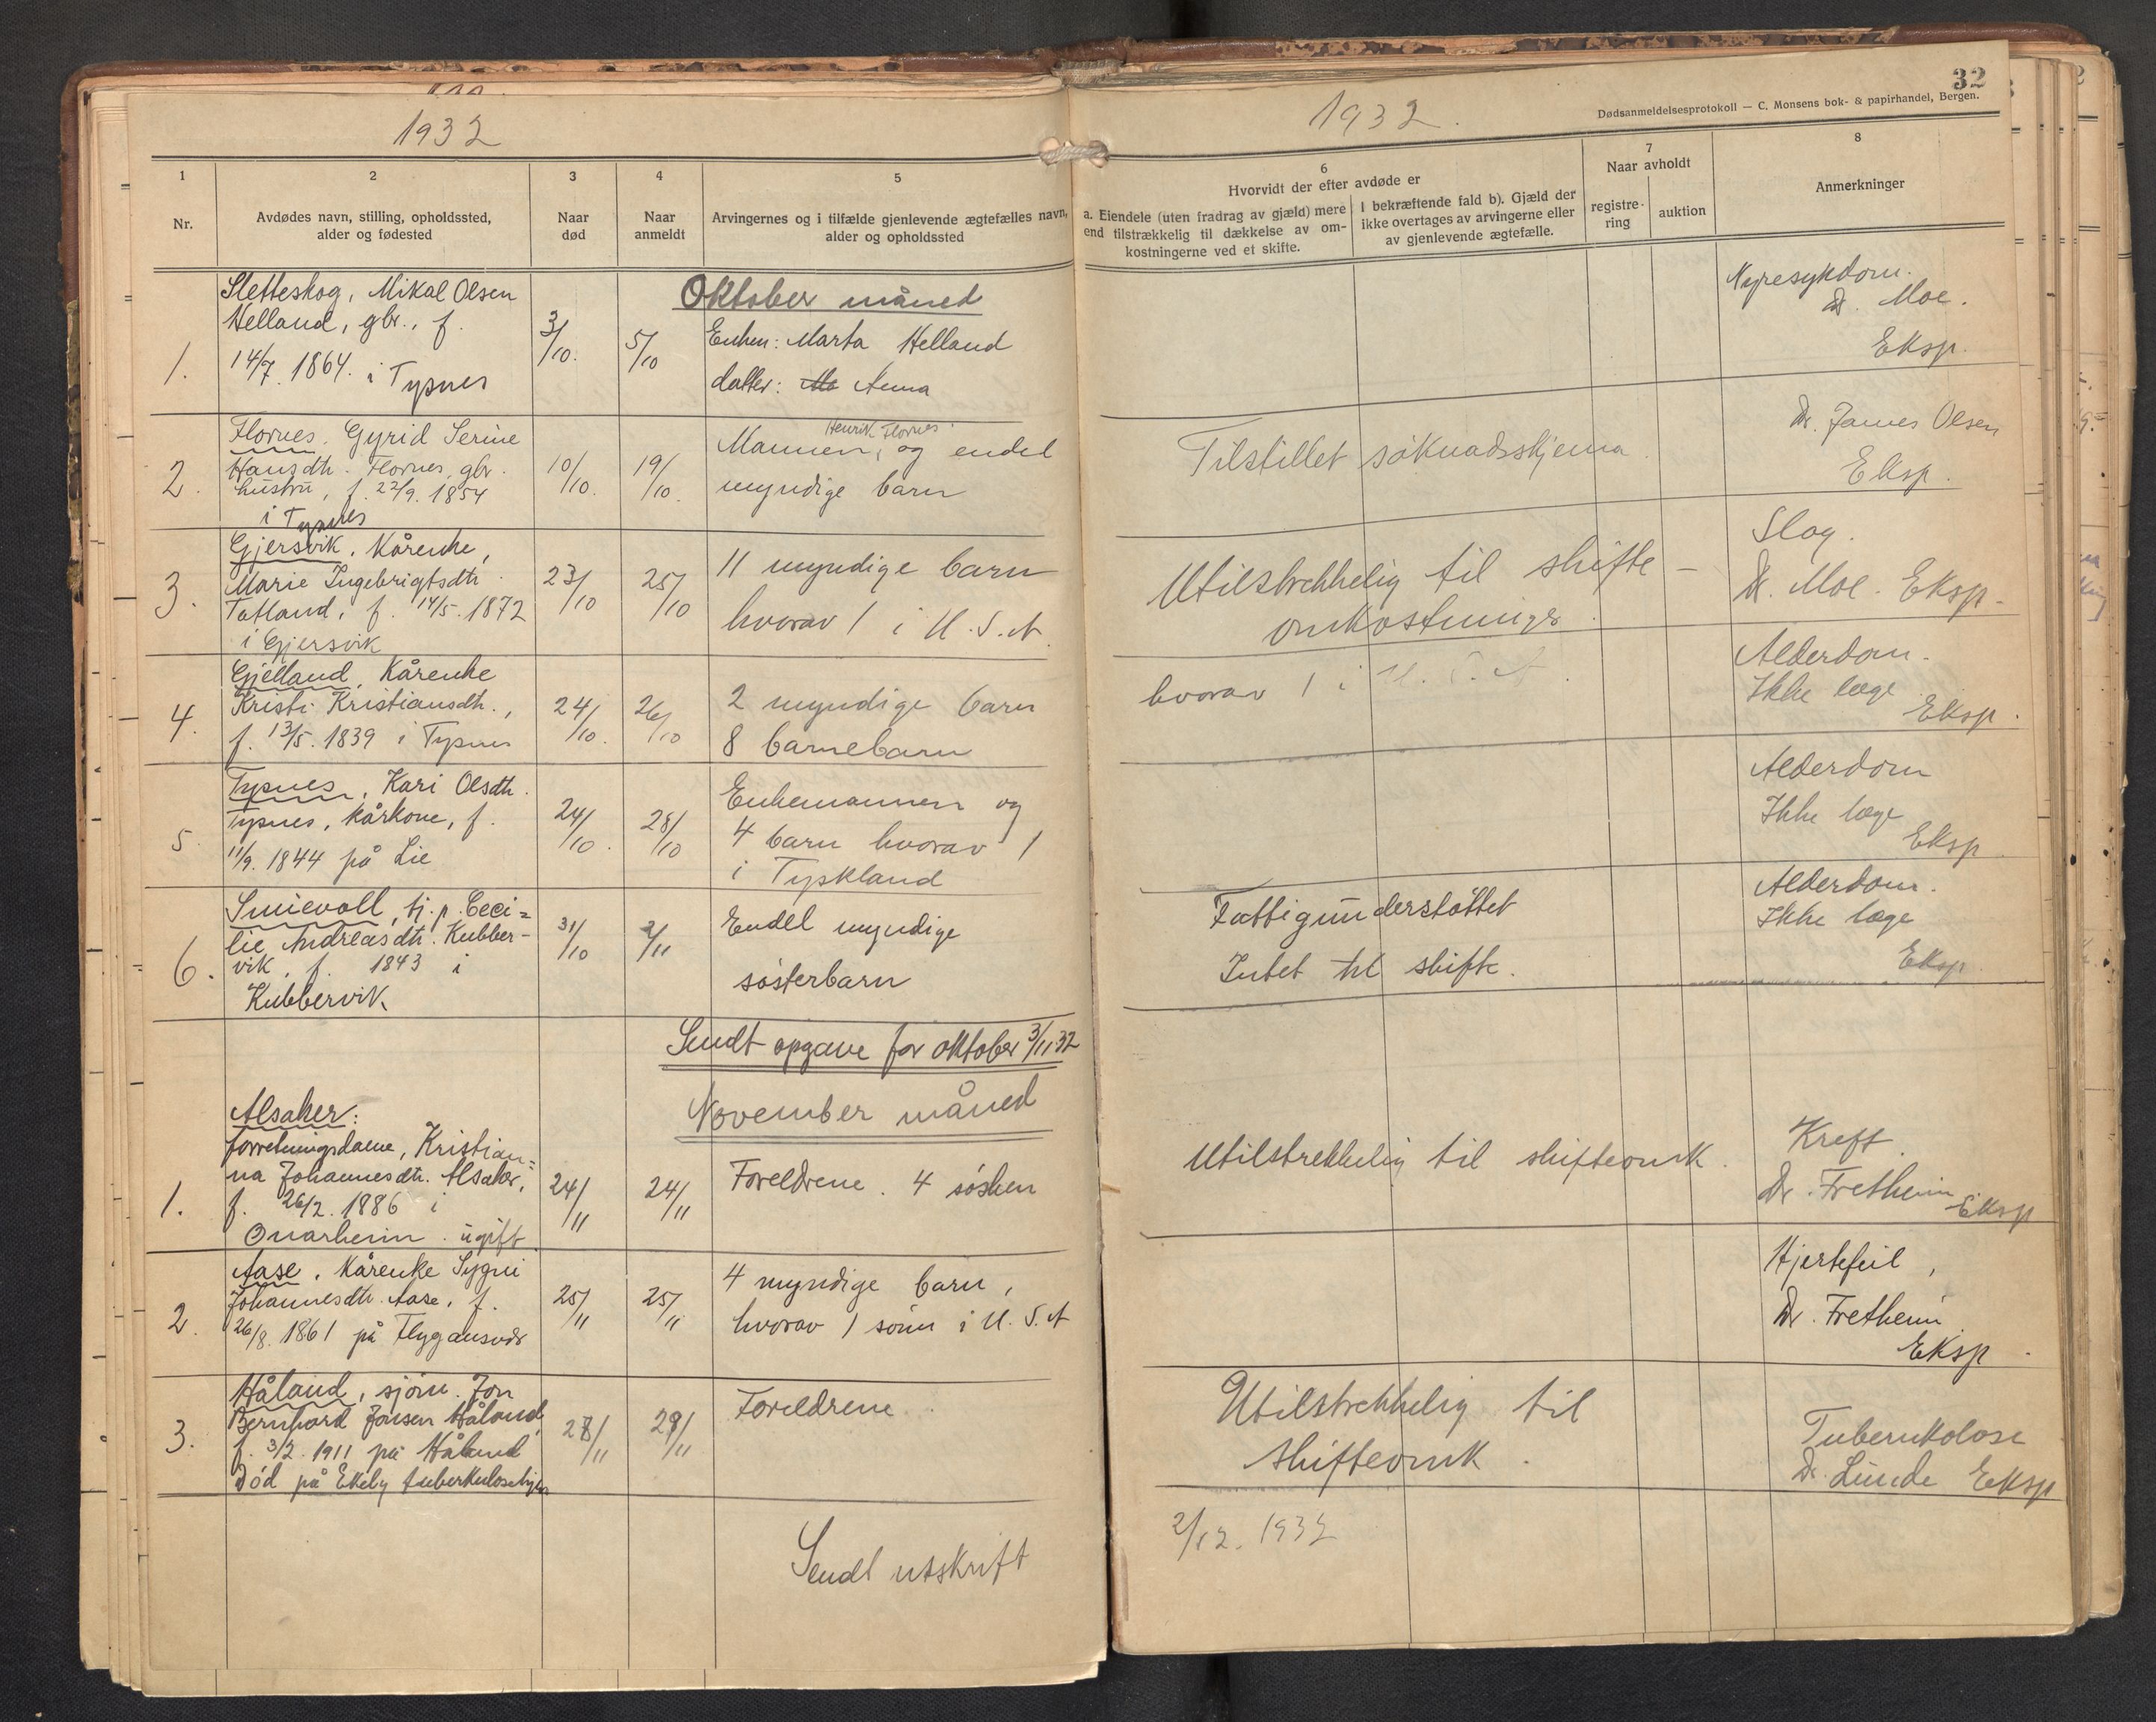 1932
1
2
3
4
5
Nr.
Avdødes navn, stilling, opholdssted,
alder og fødested
Naar
død
Naar
anmeldt
Arvingernes og i tilfælde gjenlevende ægtefælles navn,
alder og opholdssted
Oktober måned
1.
Sletteskog, Mikal Olsen
Helland, gbr., f.
14/7. 1864. i Tysnes
3/10.
5/10
Enken: Marta Helland
datter: Anna
2.
Flornes, Gyrid Serine
Hansdtr. Flornes, gbr.
hustru, f. 22/9. 1854
i Tysnes
10/10.
19/10.
Henrik Flornes
Mannen, og endel
myndige barn
3.
Gjersvik, Kårenke,
Marie Ingebrigtsdtr.
Tatland, f. 14/5. 1872
i Gjersvik
23/10
25/10
11 myndige barn
hvorav 1 i U.S.A.
4.
Gjelland, Kårenke
Kristi Kristiansdtr.,
f. 13/5. 1839 i Tysnes
24/10.
26/10
2 myndige barn
8 barnebarn
5.
Tysnes, Kari Olsdtr.
Tysnes, kårkone, f.
11/9. 1844 på Lie
24/10.
28/10
Enkemannen og
4 barn hvorav 1
i Tyskland
6.
Smievoll, tj.p. Ceci=
lie Andreasdtr. Kubber-
vik, f. 1843 i
Kubbervik
31/10
2/11
Endel myndige
søsterbarn
Sendt opgave for oktober 3/11 32
November måned
1.
Alsaker:
forretningsdame, Kristian=
na Johannesdtr. Alsaker,
f. 26/2. 1886 i
Onarheim. ugift
24/11
24/11
Foreldrene. 4 søsken
2.
Aase, Kårenke Sygni
Johannesdtr. Aase, f.
26/8. 1861 på Flygansvær
25/11
25/11
4 myndige barn,
hvorav 1 sønn i U.S.A
3.
Håland, sjøm. Jon
Bernhard Jonsen Håland,
f. 3/2. 1911 på Håland
Død på Ekeby tuberkulosehjem
28/11
29/11
Foreldrene
Sendt utskrift
32
Dødsanmeldelsesprotokoll — C. Monsens bok- & papirhandel, Bergen.
1932.
6
7
8
Hvorvidt der efter avdøde er
a. Eiendele (uten fradrag av gjæld) mere
end tilstrækkelig til dækkelse av om-
kostningerne ved et skifte.
I bekræftende fald b). Gjæld der
ikke overtages av arvingerne eller
av gjenlevende ægtefælle.
Naar avholdt
registre-
ring
auktion
Anmerkninger
Nyresykdom.
Dr. Moe.
Eksp.
Tilstillet søknadsskjema.
Dr. James Olsen
Eksp.
Utilstrekkelig til skifte-
omkostninger.
Slag.
Dr. Moe. Eksp.
hvorav 1 i U.S.A.
Alderdom.
Ikke læge
Eksp.
Alderdom
Ikke læge
Eksp
Fattigunderstøttet
Intet til skifte.
Alderdom.
Ikke læge
Eksp.
Utilstrekkelig til skifteomk.
Kreft.
Dr. Fretheim
Eksp
Hjertefeil,
Dr. Fretheim.
Eksp.
Utilstrekkelig til
skifteomk.
Tuberkolose
Dr. Linde Eksp
2/12. 1932